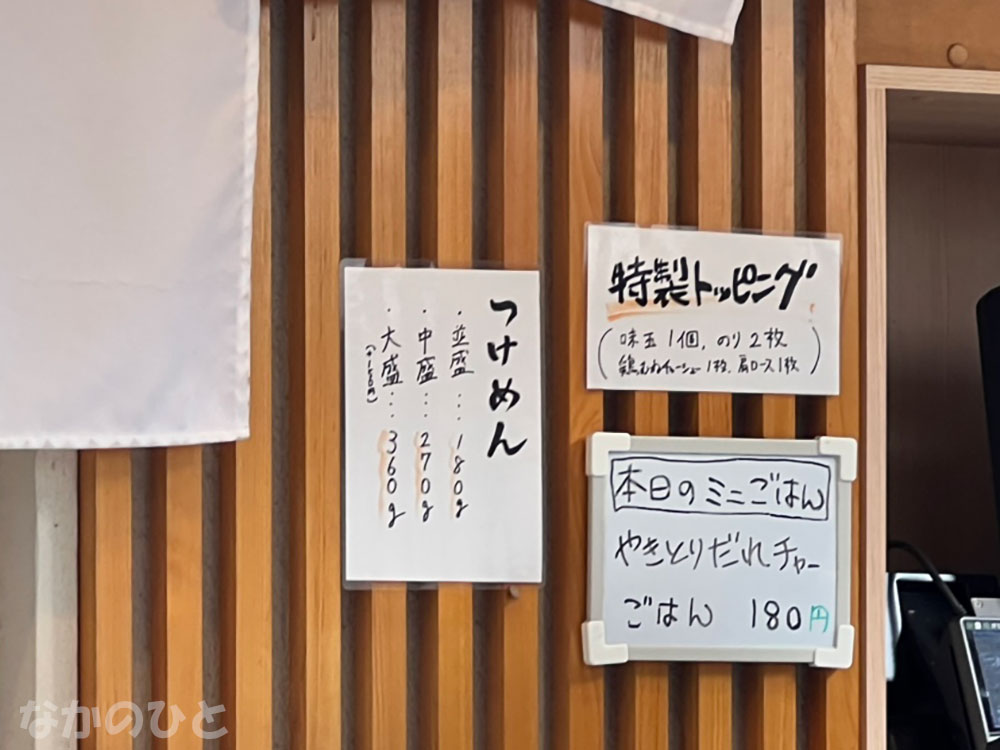 つけめん
・並盛…180g
・中盛…270g
・大盛…360g
特製トッピング
(味玉1個,のり2枚
鶏むねチャーシュー1枚,肩ロース1枚)
本日のミニごはん
やきとりだれチャー
ごはん 180円
なかのひと